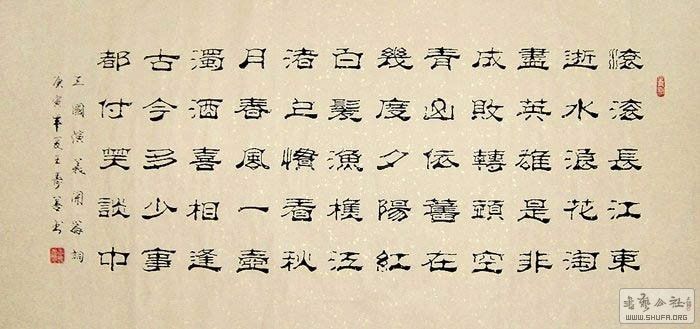 滾滾長江東
逝水浪花淘
盡英雄是非
成敗轉頭空
青山依舊在
幾度夕陽紅
白髮漁樵江
渚上慣看秋
月春風一壺
濁酒喜相逢
古今多少事
都付笑談中
三國演義開篇詞
庚寅年夏王壽善书
WWW.SHUFA.ORG